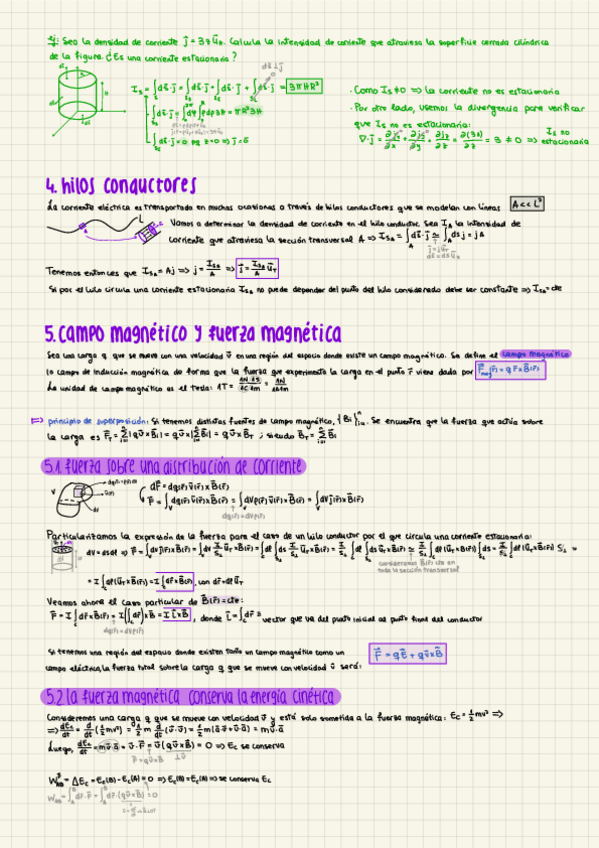 ej: Sea la densidad de corriente j⃗ = 3z u⃗z. Calcula la intensidad de corriente que atraviesa la superficie cerrada cilíndrica
de la figura. ¿Es una corriente estacionaria?
I_S = ∫ds⃗·j⃗ = ∫ds⃗·j⃗ + ∫ds⃗·j⃗ + ∫ds⃗·j⃗ = 3πHR²
∫ds⃗·j⃗ = ∫dφ∫ρdρ3z = πR²3H
∫ds⃗·j⃗ = 0 pq z=0 ⇒ j⃗ = 0⃗
· Como Is ≠ 0 ⇒ la corriente no es estacionaria
· Por otro lado, usemos la divergencia para verificar
que Is no es estacionaria:
∇·j⃗ = ∂jx/∂x + ∂jy/∂y + ∂jz/∂z = ∂(3z)/∂z = 3 ≠ 0 ⇒ Is no estacionaria
4. hilos conductores
La corriente eléctrica es transportada en muchas ocasiones a través de hilos conductores que se modelan con líneas A << L²
Vamos a determinar la densidad de corriente en el hilo conductor. Sea I_A la intensidad de
corriente que atraviesa la sección transversal A ⇒ I_SA = ∫ds⃗·j⃗ ≃ ∫ds j = jA
Tenemos entonces que I_SA = Aj ⇒ j = I_SA/A ⇒ j⃗ = I_SA/A u⃗_T
Si por el hilo circula una corriente estacionaria I_SA no puede depender del punto del hilo considerado debe ser constante ⇒ I_SA = cte
5. campo magnético y fuerza magnética
Sea una carga q que se mueve con una velocidad v⃗ en una región del espacio donde existe un campo magnético. Se define el campo magnético
(o campo de inducción magnética de forma que la fuerza que experimenta la carga en el punto r⃗ viene dada por F⃗mag(r⃗) = q v⃗ x B⃗(r⃗)
La unidad de campo magnético es el tesla: 1T = =
⇒ principio de superposición: Si tenemos distintas fuentes de campo magnético, {B⃗i}. Se encuentra que la fuerza que actúa sobre
la carga es F⃗_T = Σ|qv⃗ x B⃗i| = qv⃗ x |ΣB⃗i| = qv⃗ x B⃗_T ; siendo B⃗_T = ΣB⃗i
5.1. fuerza sobre una distribución de corriente
dF⃗ = dq(r⃗) v⃗(r⃗) x B⃗(r⃗)
F⃗ = ∫dq(r⃗) v⃗(r⃗) x B⃗(r⃗) = ∫dVρ(r⃗) v⃗(r⃗) x B⃗(r⃗) = ∫dV j⃗(r⃗) x B⃗(r⃗)
dq(r⃗) = dVρ(r⃗)
Particularizamos la expresión de la fuerza para el caso de un hilo conductor por el que circula una corriente estacionaria:
dV = ds dl ⇒ F⃗ = ∫dV j⃗(r⃗) x B⃗(r⃗) =
consideramos B⃗(r⃗) cte en
toda la sección transversal
= I∫dl(u⃗_T x B⃗(r⃗)) = I∫dr⃗ x B⃗(r⃗), con dr⃗ = dl u⃗_T
Veamos ahora el caso particular de B⃗(r⃗) = cte:
F⃗ = I∫dr⃗ x B⃗(r⃗) = I(∫dr⃗) x B⃗ = I l⃗ x B⃗, donde l⃗ = ∫dr⃗ = vector que va del punto inicial al punto final del conductor
Si tenemos una región del espacio donde existen tanto un campo magnético como un
campo eléctrico, la fuerza total sobre la carga q que se mueve con velocidad v⃗ será: F⃗ = qE⃗ + qv⃗ x B⃗
5.2 la fuerza magnética conserva la energía cinética
Consideremos una carga q que se mueve con velocidad v⃗ y está solo sometida a la fuerza magnética: Ec = ½mv² ⇒
⇒ dEc/dt = d/dt(½mv²) = ½m d/dt(v⃗·v⃗) = ½m(a⃗·v⃗ + v⃗·a⃗) = mv⃗·a⃗
Luego, dEc/dt = mv⃗·a⃗ = v⃗·F⃗ = v⃗(qv⃗ x B⃗) = 0 ⇒ Ec se conserva
F⃗ = qv⃗ x B⃗ ⊥v⃗
W_AB = ΔEc = Ec(B) - Ec(A) = 0 ⇒ Ec(B) = Ec(A) ⇒ se conserva Ec
W_AB = ∫dr⃗·F⃗ = ∫dr⃗·(qv⃗ x B⃗) = 0